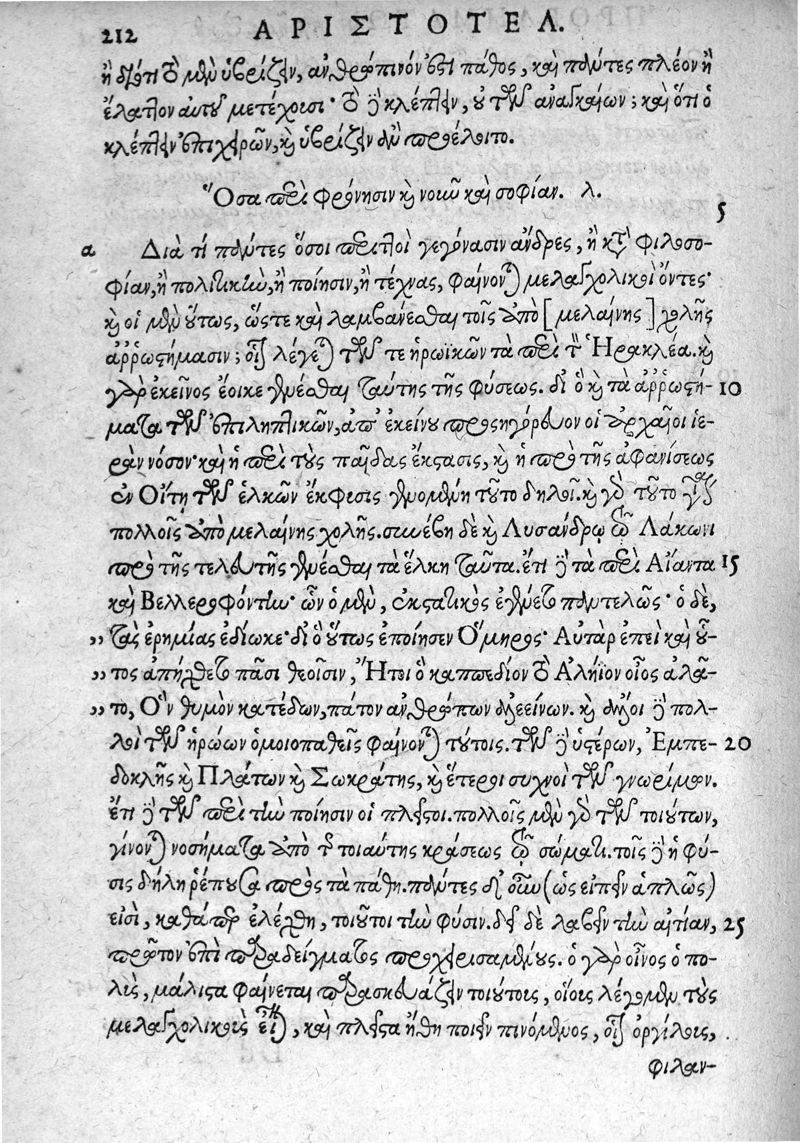 212 ΑΡΙΣΤΟΤΕΛ.
ἢ διότι τὸ μὲν ὑβρίζειν, ἀνθρώπινόν ἐστι πάθος, καὶ πάντες πλέον ἢ
ἔλαττον αὐτοῦ μετέχουσι· τὸ δὲ κλέπτειν, οὐ τῶν ἀναγκαίων; καὶ ὅτι ὁ
κλέπτειν ἐπιχειρῶν, καὶ ὑβρίζειν ἂν προέλοιτο.
Ὅσα περὶ φρόνησιν καὶ νοῦν καὶ σοφίαν. λ.
5
α Διὰ τί πάντες ὅσοι περιττοὶ γεγόνασιν ἄνδρες, ἢ κατὰ φιλοσο-
φίαν, ἢ πολιτικὴν, ἢ ποίησιν, ἢ τέχνας, φαίνονται μελαγχολικοὶ ὄντες·
καὶ οἱ μὲν οὕτως, ὥστε καὶ λαμβάνεσθαι τοῖς ἀπὸ [μελαίνης] χολῆς
ἀῤῥωστήμασιν; οἷον λέγεται τῶν τε ἡρωϊκῶν τὰ περὶ τὸν Ἡρακλέα. καὶ
γὰρ ἐκεῖνος ἔοικε γενέσθαι ταύτης τῆς φύσεως. διὸ καὶ τὰ ἀῤῥωστή- 10
ματα τῶν ἐπιληπτικῶν, ἀπ' ἐκείνου προσηγόρευον οἱ ἀρχαῖοι ἱε-
ρὰν νόσον· καὶ ἡ περὶ τοὺς παῖδας ἔκστασις, καὶ ἡ πρὸ τῆς ἀφανίσεως
ἐν Οἴτῃ τῶν ἑλκῶν ἔκφυσις γενομένη τοῦτο δηλοῖ. καὶ γὰρ τοῦτο γίνεται
πολλοῖς ἀπὸ μελαίνης χολῆς. συνέβη δὲ καὶ Λυσάνδρῳ τῷ Λάκωνι
πρὸ τῆς τελευτῆς γενέσθαι τὰ ἕλκη ταῦτα. ἔτι δὲ τὰ περὶ Αἴαντα 15
καὶ Βελλεροφόντην· ὧν ὁ μὲν, ἐκστατικὸς ἐγένετο παντελῶς· ὁ δὲ,
„ τὰς ἐρημίας ἐδίωκε· διὸ οὕτως ἐποίησεν Ὅμηρος· Αὐτὰρ ἐπεὶ καὶ οὗ-
„ τος ἀπήχθετο πᾶσι θεοῖσιν, Ἤτοι ὁ καππεδίον τὸ Ἀλήϊον οἶος ἀλᾶ-
„ το, Ὃν θυμὸν κατέδων, πάτον ἀνθρώπων ἀλεείνων. καὶ ἄλλοι δὲ πολ-
λοὶ τῶν ἡρώων ὁμοιοπαθεῖς φαίνονται τούτοις. τῶν δὲ ὑστέρων, Ἐμπε- 20
δοκλῆς καὶ Πλάτων καὶ Σωκράτης, καὶ ἕτεροι συχνοὶ τῶν γνωρίμων.
ἔτι δὲ τῶν περὶ τὴν ποίησιν οἱ πλεῖστοι. πολλοῖς μὲν γὰρ τῶν τοιούτων,
γίνονται νοσήματα ἀπὸ τῆς τοιαύτης κράσεως τῷ σώματι. τοῖς δὲ ἡ φύ-
σις δήλη ῥέπουσα πρὸς τὰ πάθη. πάντες δ' οὖν (ὡς εἰπεῖν ἁπλῶς)
εἰσὶ, καθάπερ ἐλέχθη, τοιοῦτοι τὴν φύσιν. δεῖ δὲ λαβεῖν τὴν αἰτίαν, 25
πρῶτον ἐπὶ παραδείγματος προχειρισαμένους. ὁ γὰρ οἶνος ὁ πο-
λὺς, μάλιστα φαίνεται παρασκευάζειν τοιούτους, οἵους λέγομεν τοὺς
μελαγχολικοὺς εἶναι, καὶ πλεῖστα ἤθη ποιεῖν πινόμενος, οἷον ὀργίλους,
φιλαν-